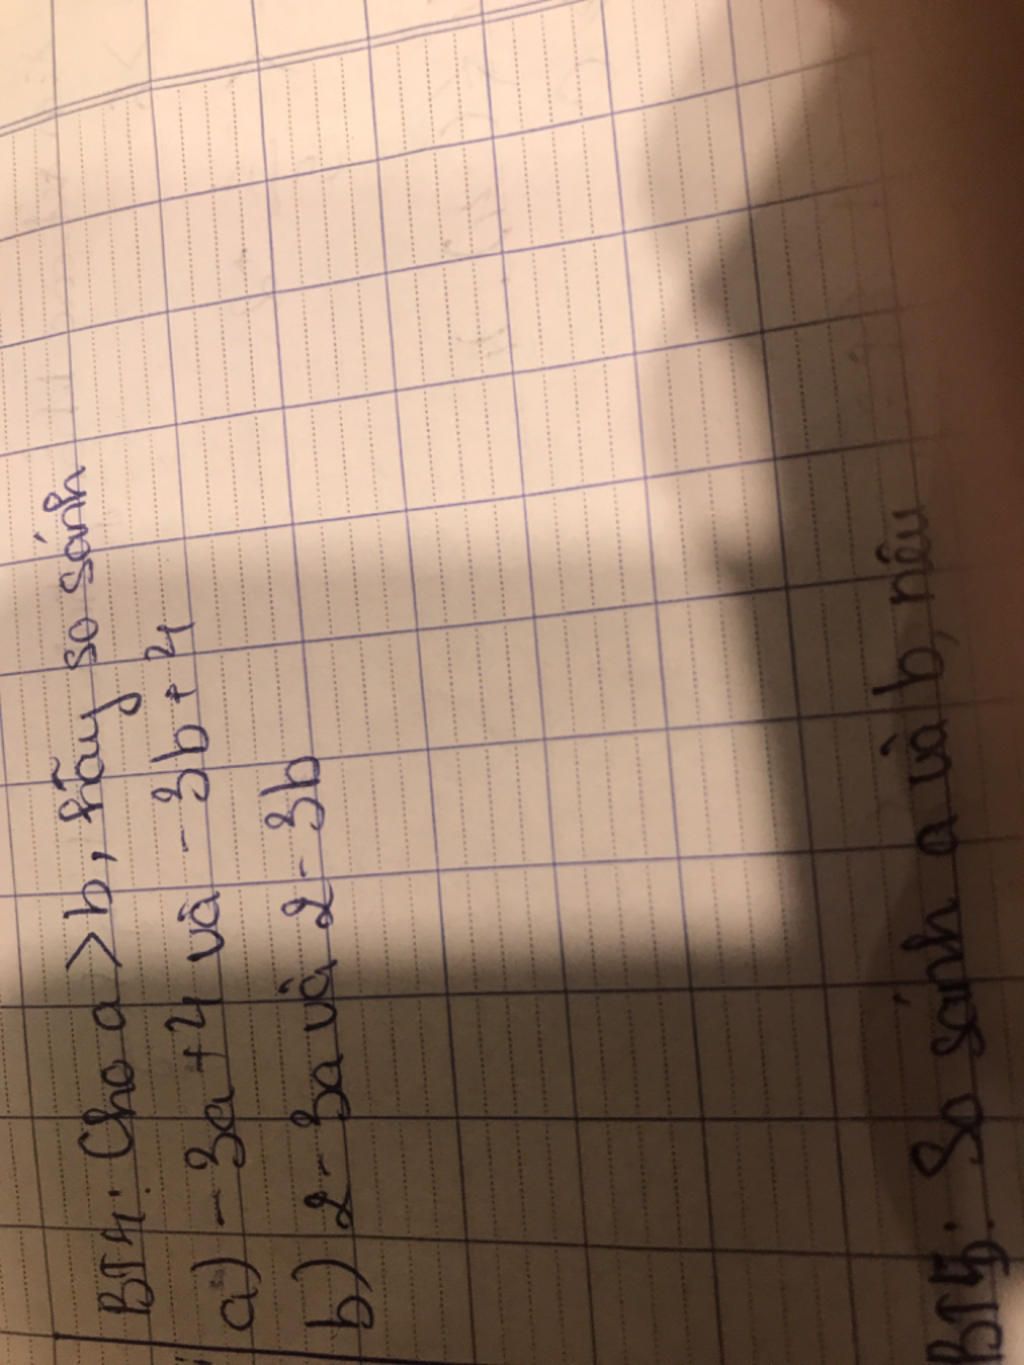 BT4: Cho a > b, hãy so sánh
a) - 3a + 4 và - 3b + 4
b) 2 - 3a và 2 - 3b
BT5: So sánh a và b, nếu